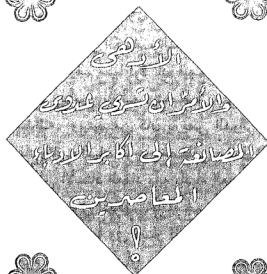 الأدهى
والأمر أن تسري عدوى
المصانعة إلى أكابر الأدباء
المعاصرين
!